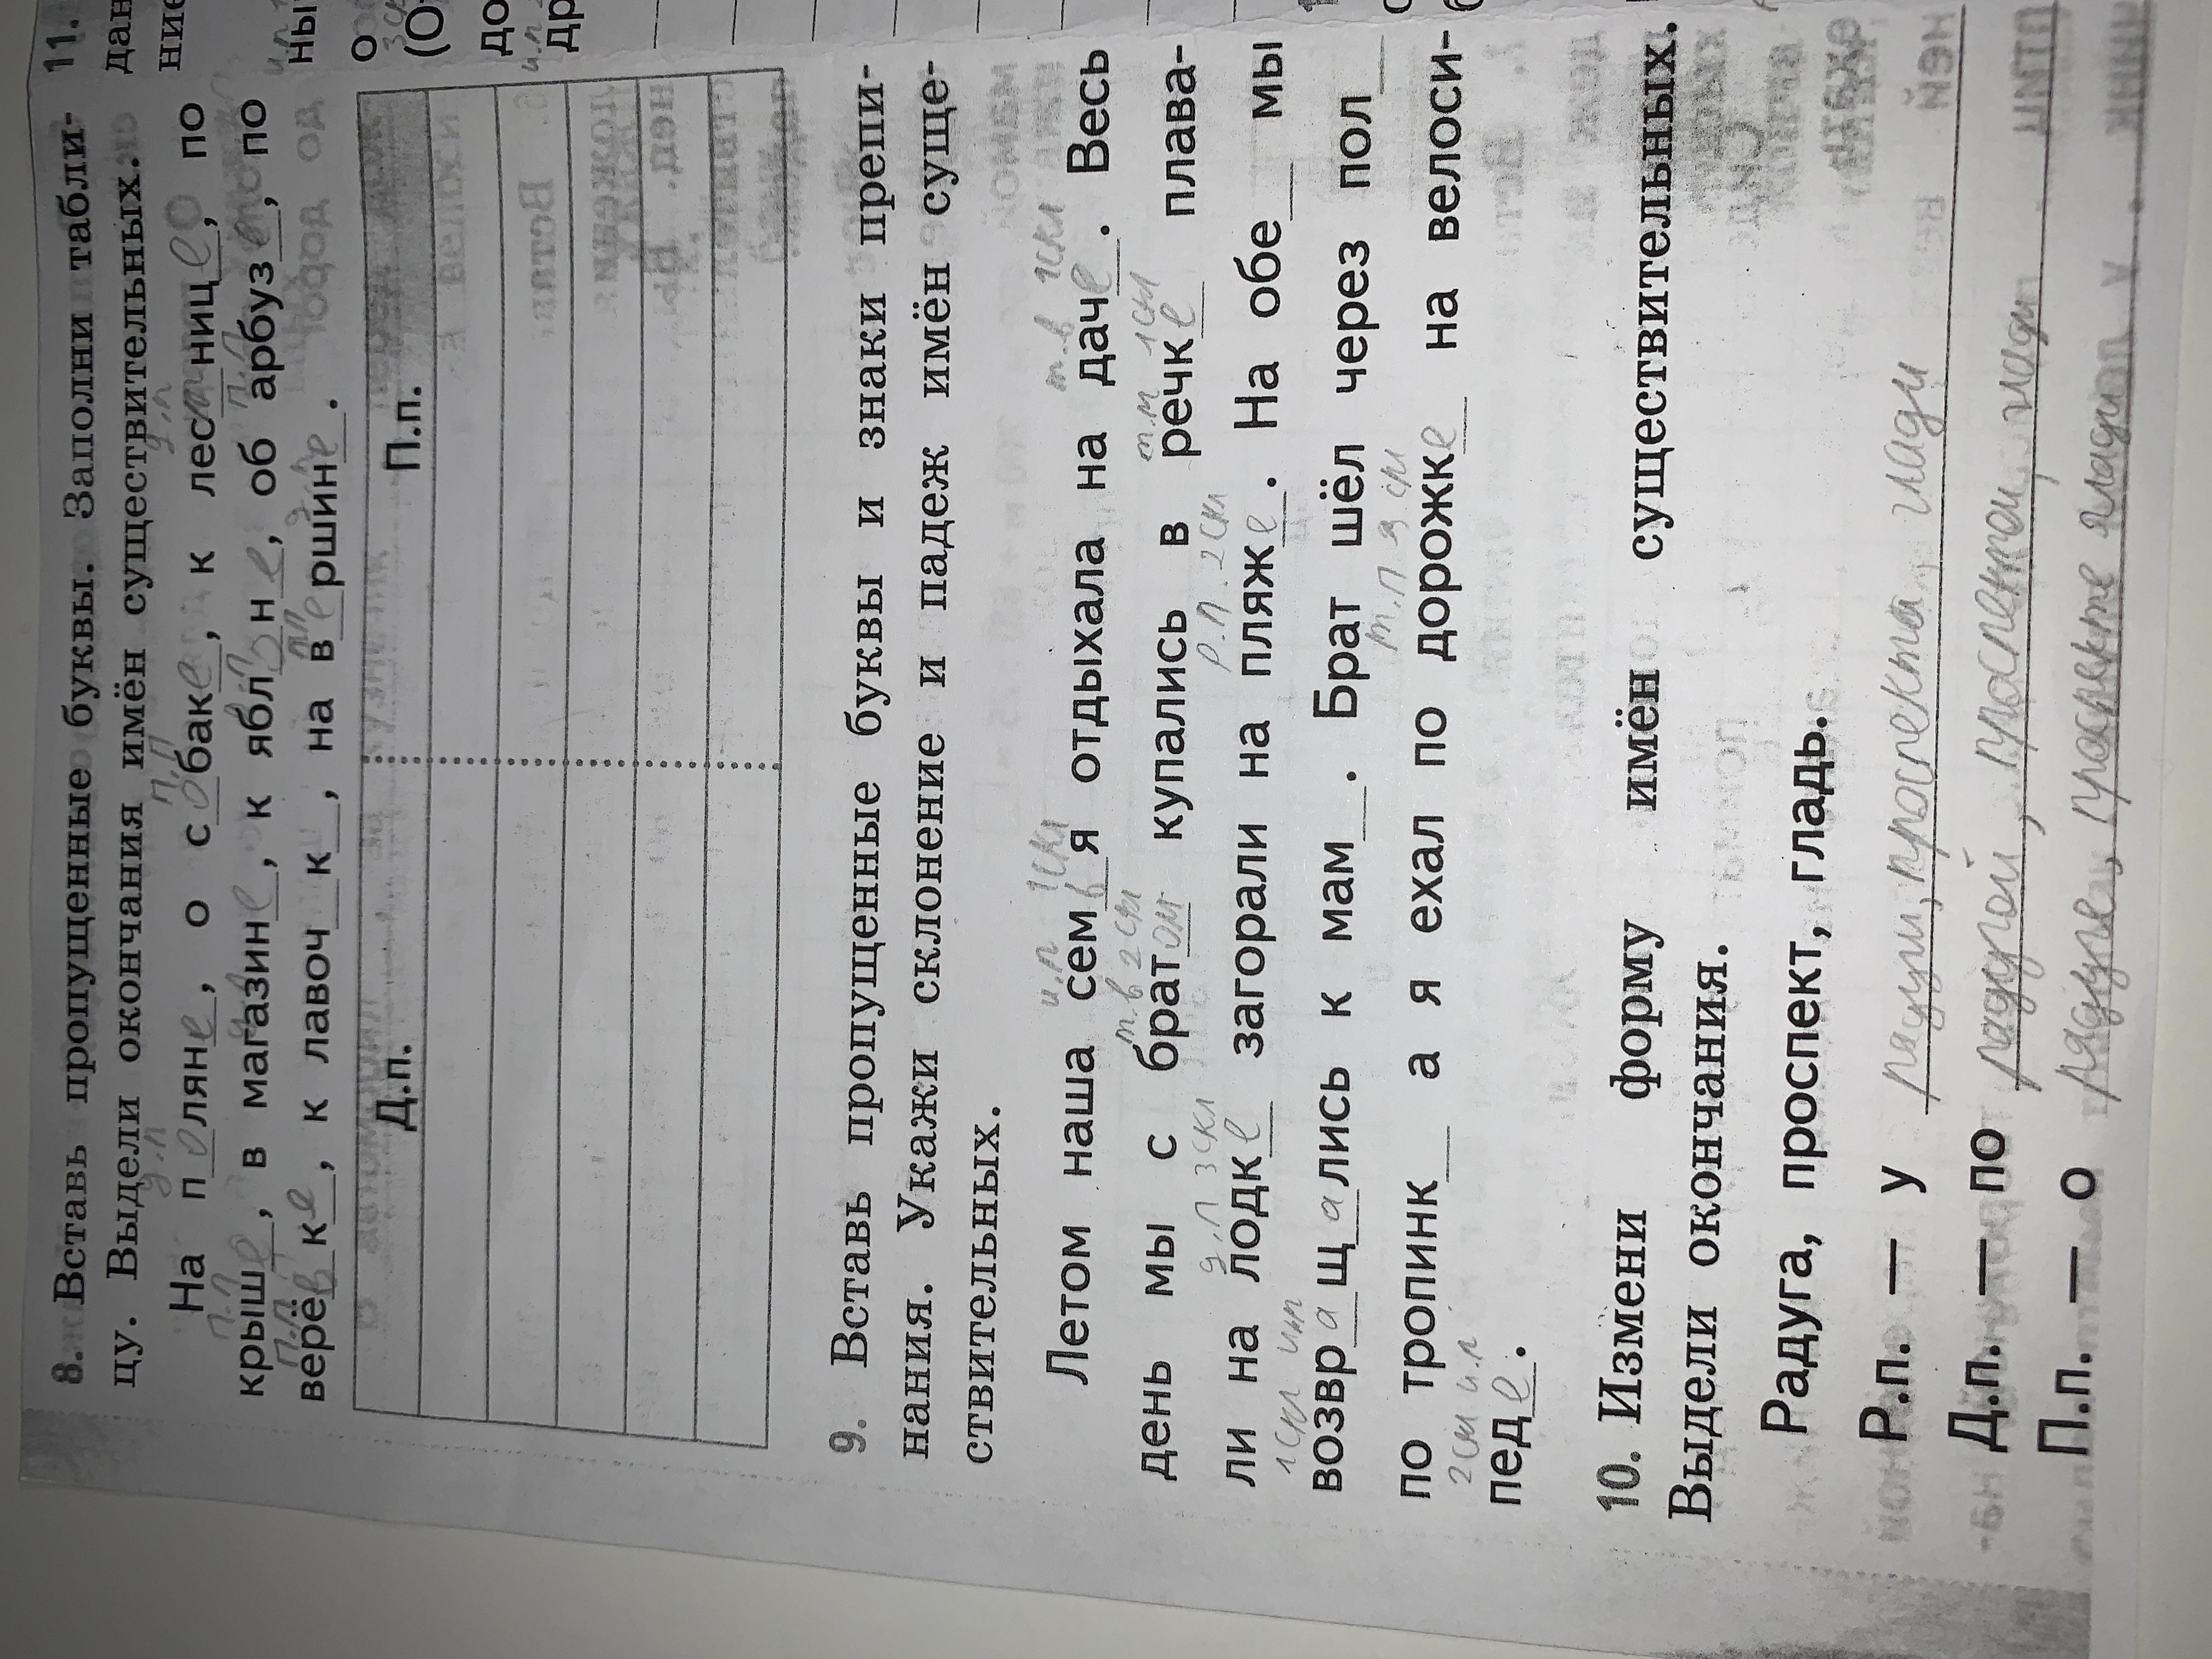 8. Вставь пропущенные буквы. Заполни табли-
цу. Выдели окончания имён существительных.
На п_ляне, о собаке, к лес_нице, по
крыше, в магазине, к яблоне, об арбузе, по
верёвке, к лавоч_к_, на вершине.
Д.п. П.п.
9. Вставь пропущенные буквы и знаки препи-
нания. Укажи склонение и падеж имён суще-
ствительных.
и.п 1скл т.в 1скл
Летом наша семья отдыхала на даче. Весь
т.в 2скл 1скл
день мы с братом купались в речке плава-
д.п 3скл р.п. 2скл
ли на лодке загорали на пляже. На обе_ мы
1скл
возвращались к мам_. Брат шёл через пол_
т.п
по тропинк_ а я ехал по дорожке на велоси-
2скл и.п
педе.
10. Измени форму имён существительных.
Выдели окончания.
Радуга, проспект, гладь.
Р.п. — у радуги, проспекта, глади
Д.п. — по радугой, проспектом, глади
П.п. — о радуге, проспекте гладит
11.
дан
ние
ны
о
(О
до
и.п
др